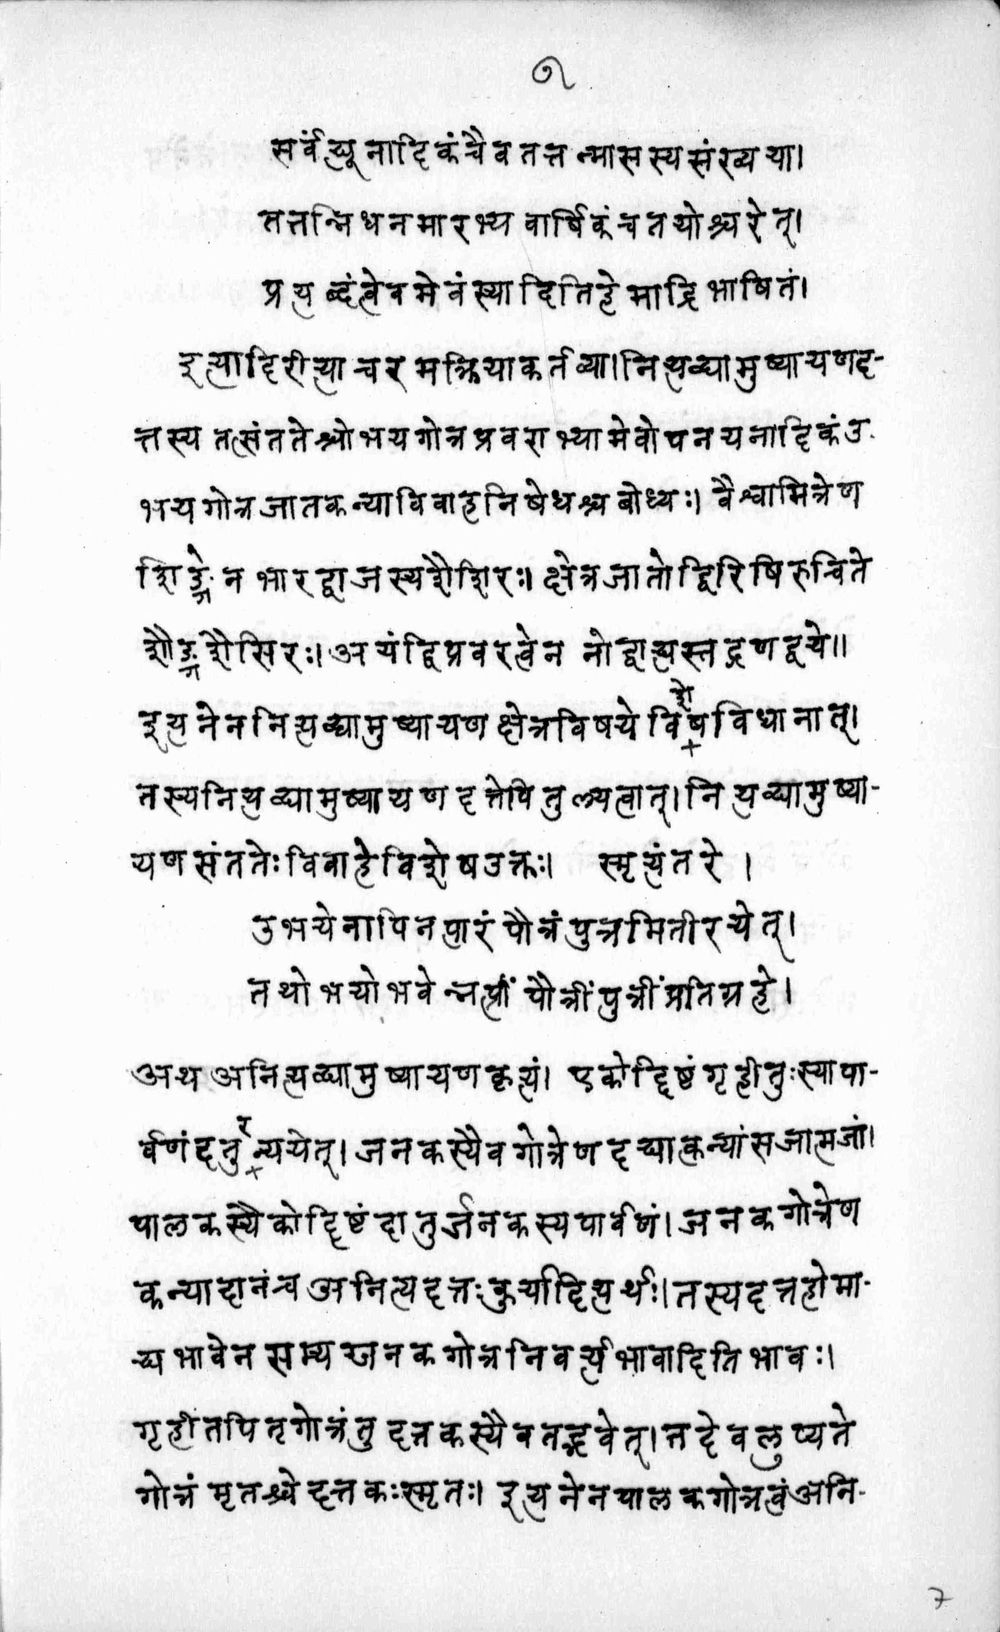 ७
सर्वंह्यूनादिकंचैव तत्तन्मासस्यसंख्यया।
तत्तन्निधनमारभ्य वार्षिकंच तयोश्चरेत्।
प्रत्यब्दंत्वेवमेवंस्यादितिहेमाद्रिभाषितं।
इत्यादिरीत्याचरमक्रियाकर्तव्या।नित्यद्व्यामुष्यायणद-
त्तस्य तत्संततेश्चोभयगोत्रप्रवराभ्यामेवोपनयनादिकंउ-
भयगोत्रजातकन्याविवाहनिषेधश्चबोध्यः। वैश्वामित्रेण
शिङ्गेन भारद्वाजस्यशैशिरः। क्षेत्रजातोद्विरिषिरुच्यिते
शौङ्गशैसिरः।अयंद्विप्रवरत्वेन नोद्वाह्यस्तद्गणद्वये॥
इत्यनेननित्यद्व्यामुष्यायण क्षेत्रविषये विशेषविधानात्।
तस्यनित्यद्व्यामुष्यायणदत्तेपितुल्यत्वात्।नित्यद्व्यामुष्या-
यणसंततेःविवाहेविशेषउक्तः। स्मृत्यंतरे।
उभयेनापिनप्तारं पौत्रंपुत्रमितीरयेत्।
तथोभयोभवेन्नप्त्रीं पौत्रींपुत्रींप्रतिग्रहे।
अथ अनित्यद्व्यामुष्यायणकृत्यं। एकोद्दिष्टंगृहीतुःस्यापा-
र्वणंदतुर्न्ययेत्।जनकस्यैवगोत्रेणदद्यात्कन्यांसआत्मजां।
पालकस्यैकोद्दिष्टंदातुर्जनकस्यपार्वणं।जनकगोत्रेण
कन्यादानंचअनित्यदत्तःकुर्यादित्यर्थः।तस्यदत्तहोमा-
द्यभावेन सम्यग्जनकगोत्रनिवर्त्यभावादितिभावः।
गृहीतपितृगोत्रंतु दत्तकस्यैवतद्भवेत्।तदेवलुप्यते
गोत्रं मृतश्चेद्दत्तकःस्मृतः। इत्यनेनपालकगोत्रत्वंअनि-
7